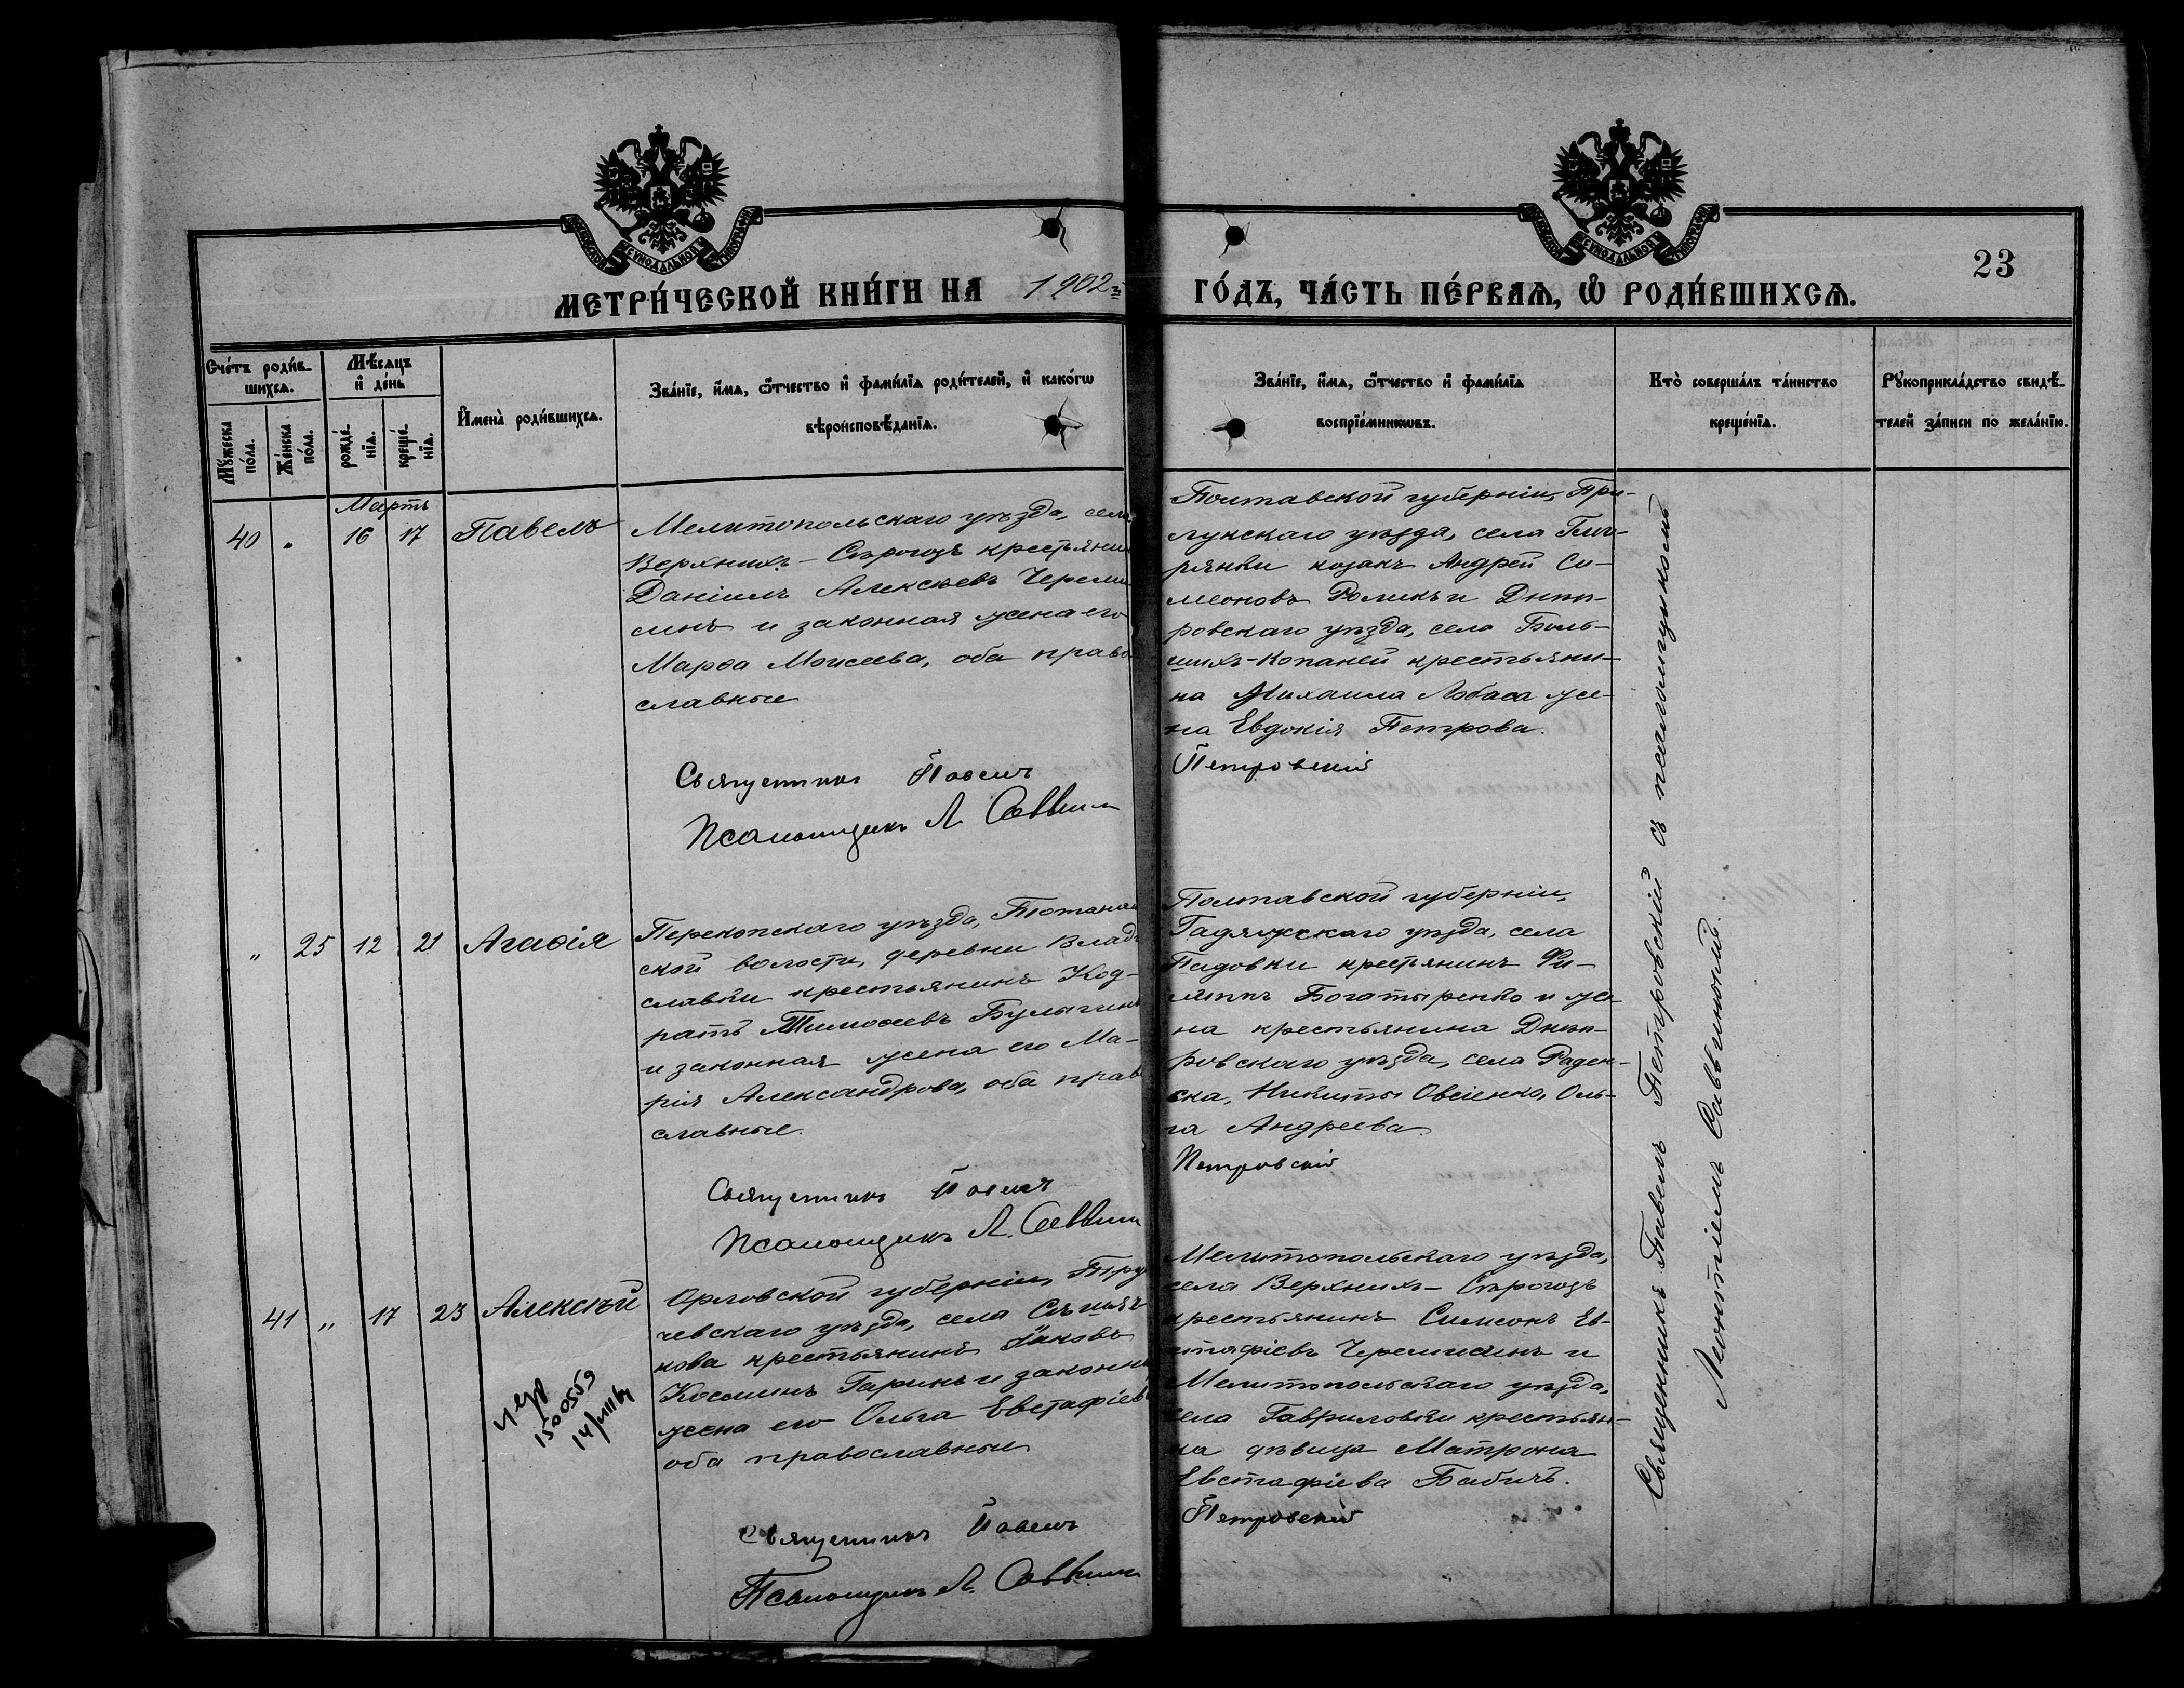 МЕТРИ́ЧЕСКОЙ КНИ́ГИ НА 1902й ГО́ДЪ, ЧА́СТЬ ПЕ́РВАѦ, Ѽ РОДИ́ВШИХСѦ.
23
Счетъ родив-
шихсѧ.
Мѣсѧцъ
и день
Мꙋжеска
пола.
Женска
пола.
рожде-
нїѧ.
креще-
нїѧ.
Имена родившихсѧ.
Званїе, имѧ, ѿчество и фамилїѧ родителей, и какогѡ
вѣроисповѣданїѧ.
Званїе, имѧ, ѿчество и фамилїѧ
воспрїемникѡвъ.
Кто совершалъ таинство
крещенїѧ.
Рꙋкоприкладство свидѣ-
телей записи по желанїю.
Мартъ
40 " 16 17 Павелъ
Мелитопольскаго уѣзда, села
Верхнихъ-Сѣрогозъ крестьянин
Даніилъ Алексѣевъ Череми
синъ и законная жена его
Марѳа Моисеева, оба право
славные
Священникъ Павелъ
Псаломщикъ Л. Саввин
Полтавской губерніи, При-
лукскаго уѣзда, села
козакъ Андрей Си-
меоновъ Роликъ и Днѣп-
ровскаго уѣзда, села Боль-
шихъ-Копаней крестьяни-
на Михаила Лобаса же-
на Евдокія Петрова.
Петровскій
" 25 12 21 Агаѳія
Перекопскаго уѣзда,
ской волости, деревни Влади
славки крестьянинъ Код-
ратъ Тимоѳеевъ Булыгинъ
и законная жена его Ма-
рія Александрова, оба прав
славные.
Священникъ Павелъ
Псаломщикъ Л. Саввин
Полтавской губерніи,
Гадячскаго уѣзда, села
крестьянинъ Фи-
липпъ Богатыренко и же-
на крестьянина Днѣп-
ровскаго уѣзда, села Раден-
ска, Никиты Овсіенко, Оль-
га Андреева.
Петровскій
41 " 17 23 Алексѣй
Орловской губерніи, Тру
чевскаго уѣзда, села
кова крестьянинъ Іаковъ
Косминъ Гаринъ и законн
жена его Ольга Евстафіев
оба православные
1500559
Священникъ Павелъ
Псаломщикъ Л. Саввин
Мелитопольскаго уѣзда,
села Верхнихъ-Сѣрогозъ
крестьянинъ Симеонъ Ев-
стафіевъ Черемисинъ и
Мелитопольскаго уѣзда,
села Гавриловки крестьян-
ка дѣвица Матрона
Евстафіева Бабичъ.
Петровскій
Священникъ Павелъ Петровскій съ псаломщикомъ
Леонтіемъ Саввинымъ.